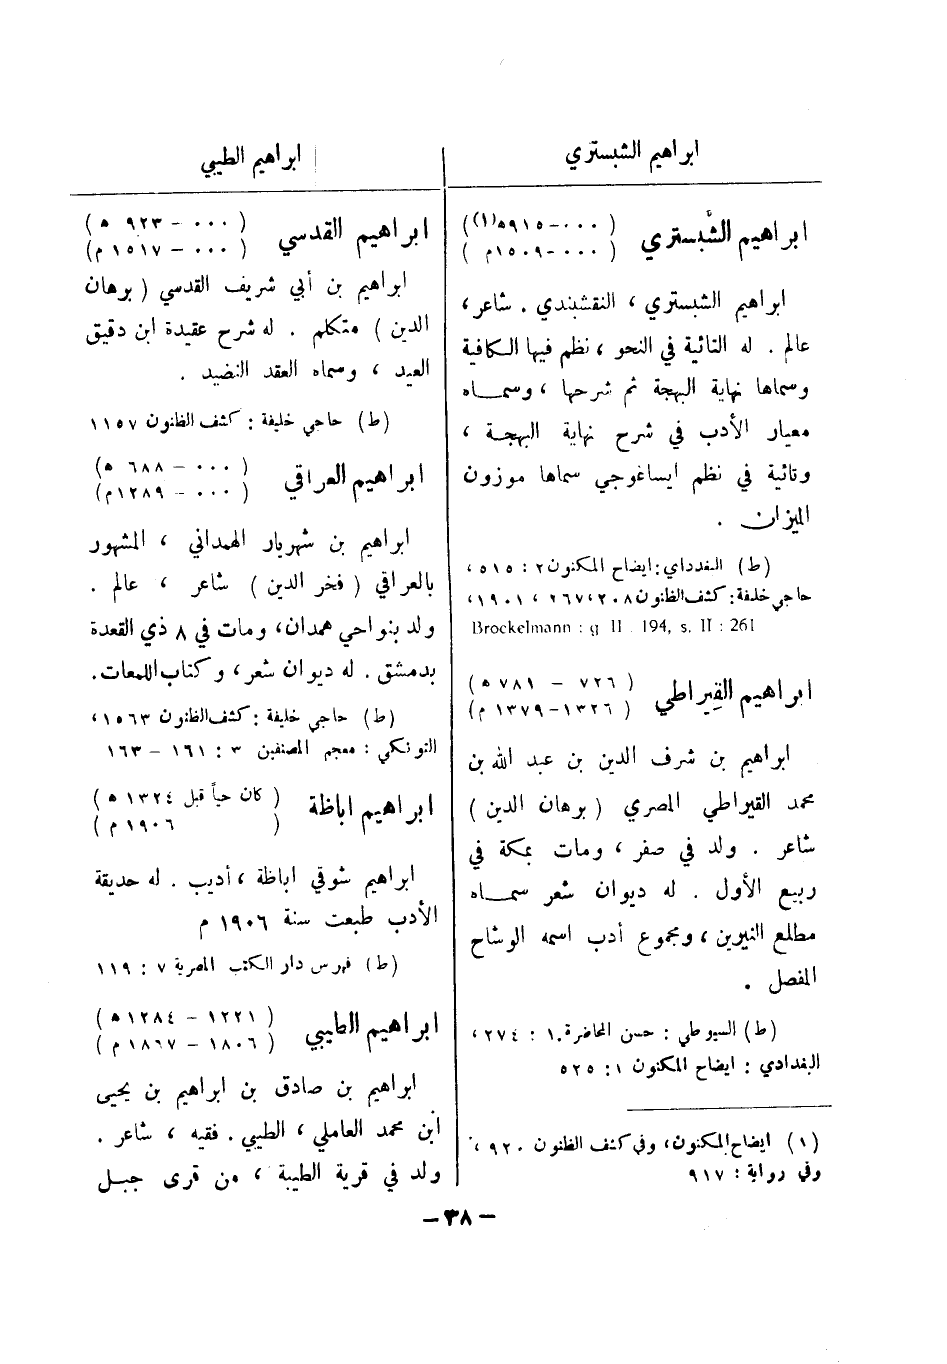 ابراهيم الشبستري
ابراهيم الشَّبستري
( ٠٠٠ - ٩١٥ ه(١) )
( ٠٠٠ - ١٥٠٩ م )
ابراهيم الشبستري ، النقشبندي . شاعر ،
عالم . له التائية في النحو ، نظم فيها الكافية
وسماها نهاية البهجة ثم شرحها ، وسمــاه
معيار الأدب في شرح نهاية البهجـة ،
وتائية في نظم ايساغوجي سماها موزون
الميزان .
(ط) البغدادي : ايضاح المكنون ٢ : ٥١٥ ،
حاجي خليفة : كشف الظنون ٢٠٨ ، ٢٦٧ ، ١٩٠١ ،
Brockelmann : g II . 194, s. II : 261
ابراهيم القِيراطي
( ٧٢٦ - ٧٨١ ه )
( ١٣٢٦ - ١٣٧٩ م )
ابراهيم بن شرف الدين بن عبد الله بن
محمد القيراطي المصري ( برهان الدين )
شاعر . ولد في صفر ، ومات بمكة في
ربيع الأول . له ديوان شعر سمــاه
مطلع النيرين ، ومجموع أدب اسمه الوشاح
المفصل .
(ط) السيوطي : حسن المحاضرة ١ : ٢٧٤ ،
البغدادي : ايضاح المكنون ١ : ٥٢٥
(١) ايضاح المكنون ، وفي كشف الظنون ٩٢٠ ،
وفي رواية : ٩١٧
ابراهيم الطيبي
ابراهيم القدسي
( ٠٠٠ - ٩٢٣ ه )
( ٠٠٠ - ١٥١٧ م )
ابراهيم بن أبي شريف القدسي ( برهان
الدين ) متكلم . له شرح عقيدة ابن دقيق
العيد ، وسماه العقد النضيد .
(ط) حاجي خليفة : كشف الظنون ١١٥٧
ابراهيم العراقي
( ٠٠٠ - ٦٨٨ ه )
( ٠٠٠ - ١٢٨٩ م )
ابراهيم بن شهريار الهمداني ، المشهور
بالعراقي ( فخر الدين ) شاعر ، عالم .
ولد بنواحي همدان ، ومات في ٨ ذي القعدة
بدمشق . له ديوان شعر ، وكتاب اللمعات .
(ط) حاجي خليفة : كشف الظنون ١٥٦٣ ،
التونكي : معجم المصنفين ٣ : ١٦١ - ١٦٣
ابراهيم اباظة
( كان حياً قبل ١٣٢٤ ه )
( ١٩٠٦ م )
ابراهيم شوقي اباظة ، أديب . له حديقة
الأدب طبعت سنة ١٩٠٦ م
(ط) فهرس دار الكتب المصرية ٧ : ١١٩
ابراهيم الطيبي
( ١٢٢١ - ١٢٨٤ ه )
( ١٨٠٦ - ١٨٦٧ م )
ابراهيم بن صادق بن ابراهيم بن يحيى
ابن محمد العاملي ، الطيبي . فقيه ، شاعر .
ولد في قرية الطيبة ، من قرى جبـل
- ٣٨ -